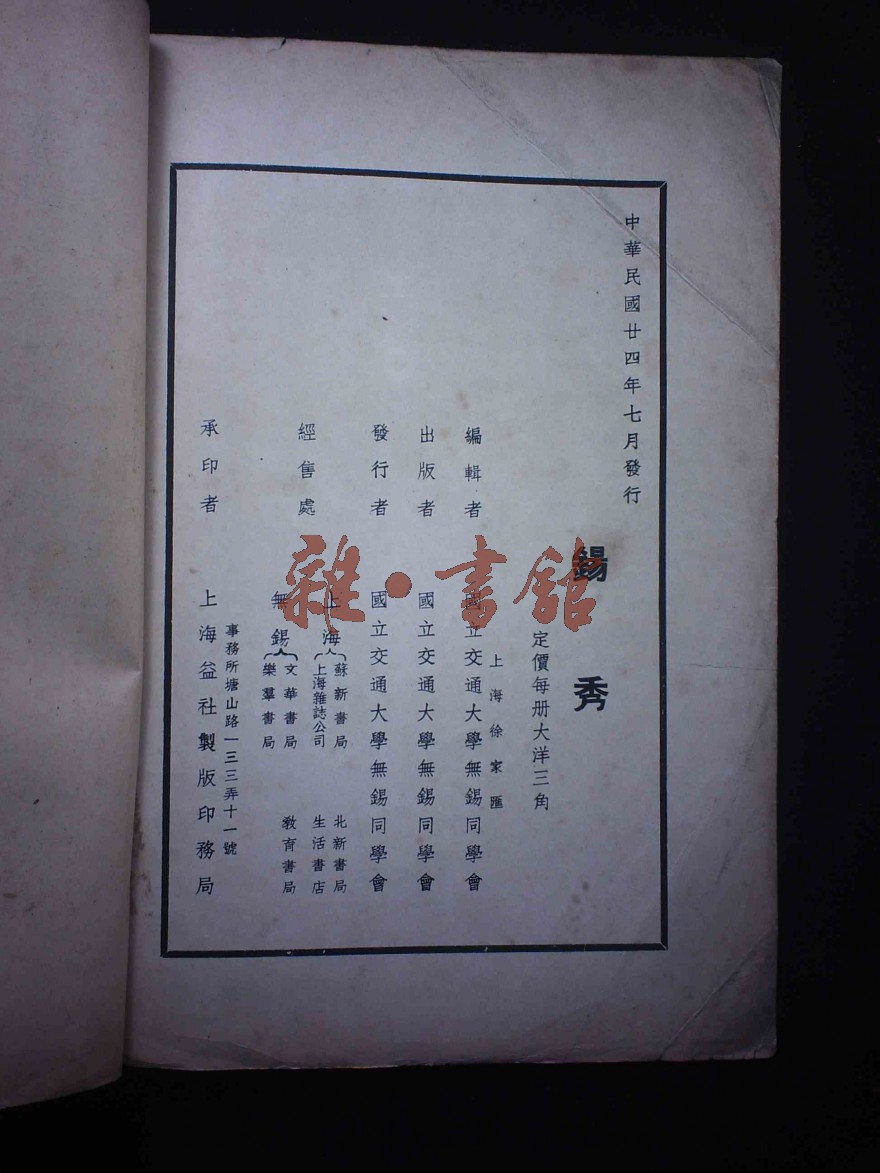 中華民國廿四年七月發行
錫秀
定價每册大洋三角
上海徐家匯
編輯者 國立交通大學無錫同學會
出版者 國立交通大學無錫同學會
發行者 國立交通大學無錫同學會
經售處
上海
蘇新書局 北新書局
上海雜誌公司 生活書店
無錫
文華書局 教育書局
樂羣書局
事務所塘山路一三三弄十一號
承印者 上海益社製版印務局
雜·書館